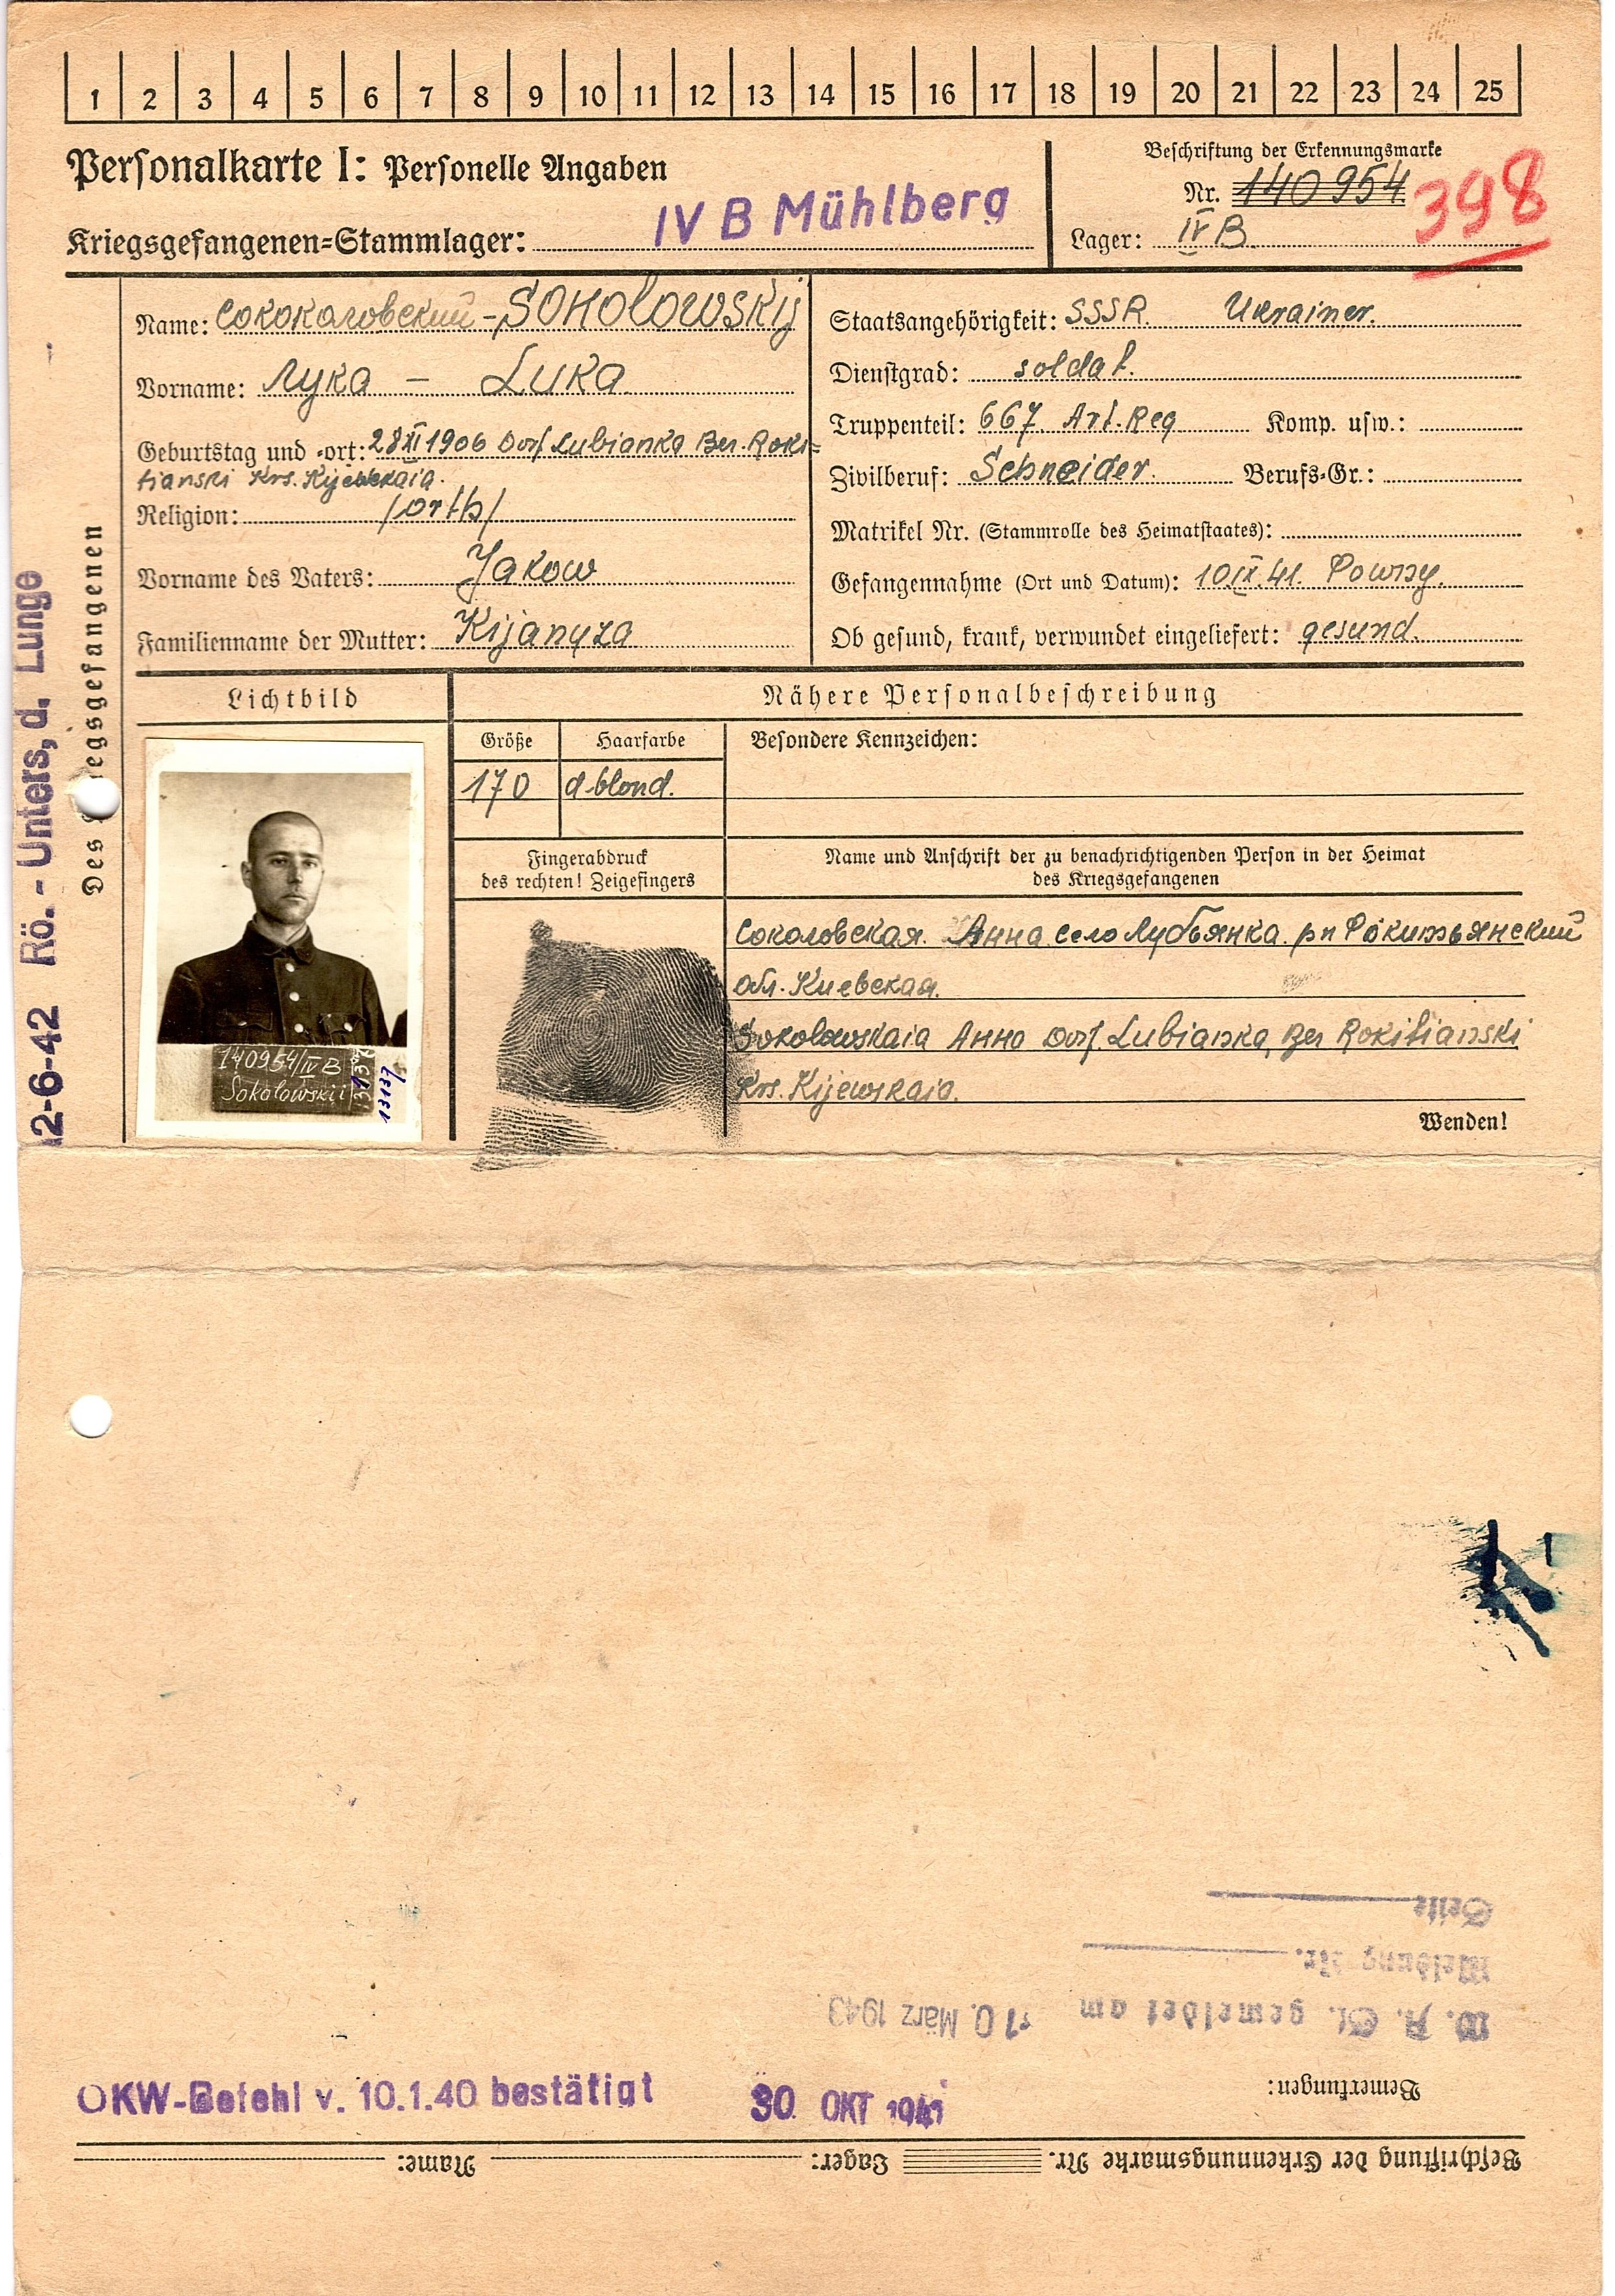 1 2 3 4 5 6 7 8 9 10 11 12 13 14 15 16 17 18 19 20 21 22 23 24 25
Personalkarte I: Personelle Angaben
Kriegsgefangenen=Stammlager: IV B Mühlberg
Beschriftung der Erkennungsmarke
Nr. 140954
398
Lager: IV B
Des Kriegsgefangenen
12-6-42 Rö.-Unters, d. Lunge
Name: Сококаловский - SOKOLOWSKIJ
Vorname: Лука - Luka
Geburtstag und =ort: 28 XI 1906 Dorf Lubianka Ber. Roki=
tianski Krs. Kijewskaia.
Religion: /orth/
Vorname des Vaters: Jakow
Familienname der Mutter: Kijanyza
Staatsangehörigkeit: SSSR. Ukrainer.
Dienstgrad: soldat.
Truppenteil: 667. Art. Reg Komp. usw.:
Zivilberuf: Schneider. Berufs=Gr.:
Matrikel Nr. (Stammrolle des Heimatstaates):
Gefangennahme (Ort und Datum): 10.IX.41.
Ob gesund, krank, verwundet eingeliefert: gesund.
Lichtbild
140954/IV B
Sokolowskii
13137
Nähere Personalbeschreibung
Größe Haarfarbe Besondere Kennzeichen:
170 d blond.
Fingerabdruck
des rechten! Zeigefingers
Name und Anschrift der zu benachrichtigenden Person in der Heimat
des Kriegsgefangenen
Соколовская. Анна село Лубьянка рн Рокитьянский
обл. Киевская.
Sokolowskaia Анна Dorf. Lubianka, Ber Rokitianski
Krs. Kijewskaia.
Wenden!
Seite
Meldung Nr.
W. A. St. gemeldet am 10. März 1943
Bemerkungen:
OKW-Befehl v. 10.1.40 bestätigt 30. OKT 1941
Beschriftung der Erkennungsmarke Nr. Lager: Name: